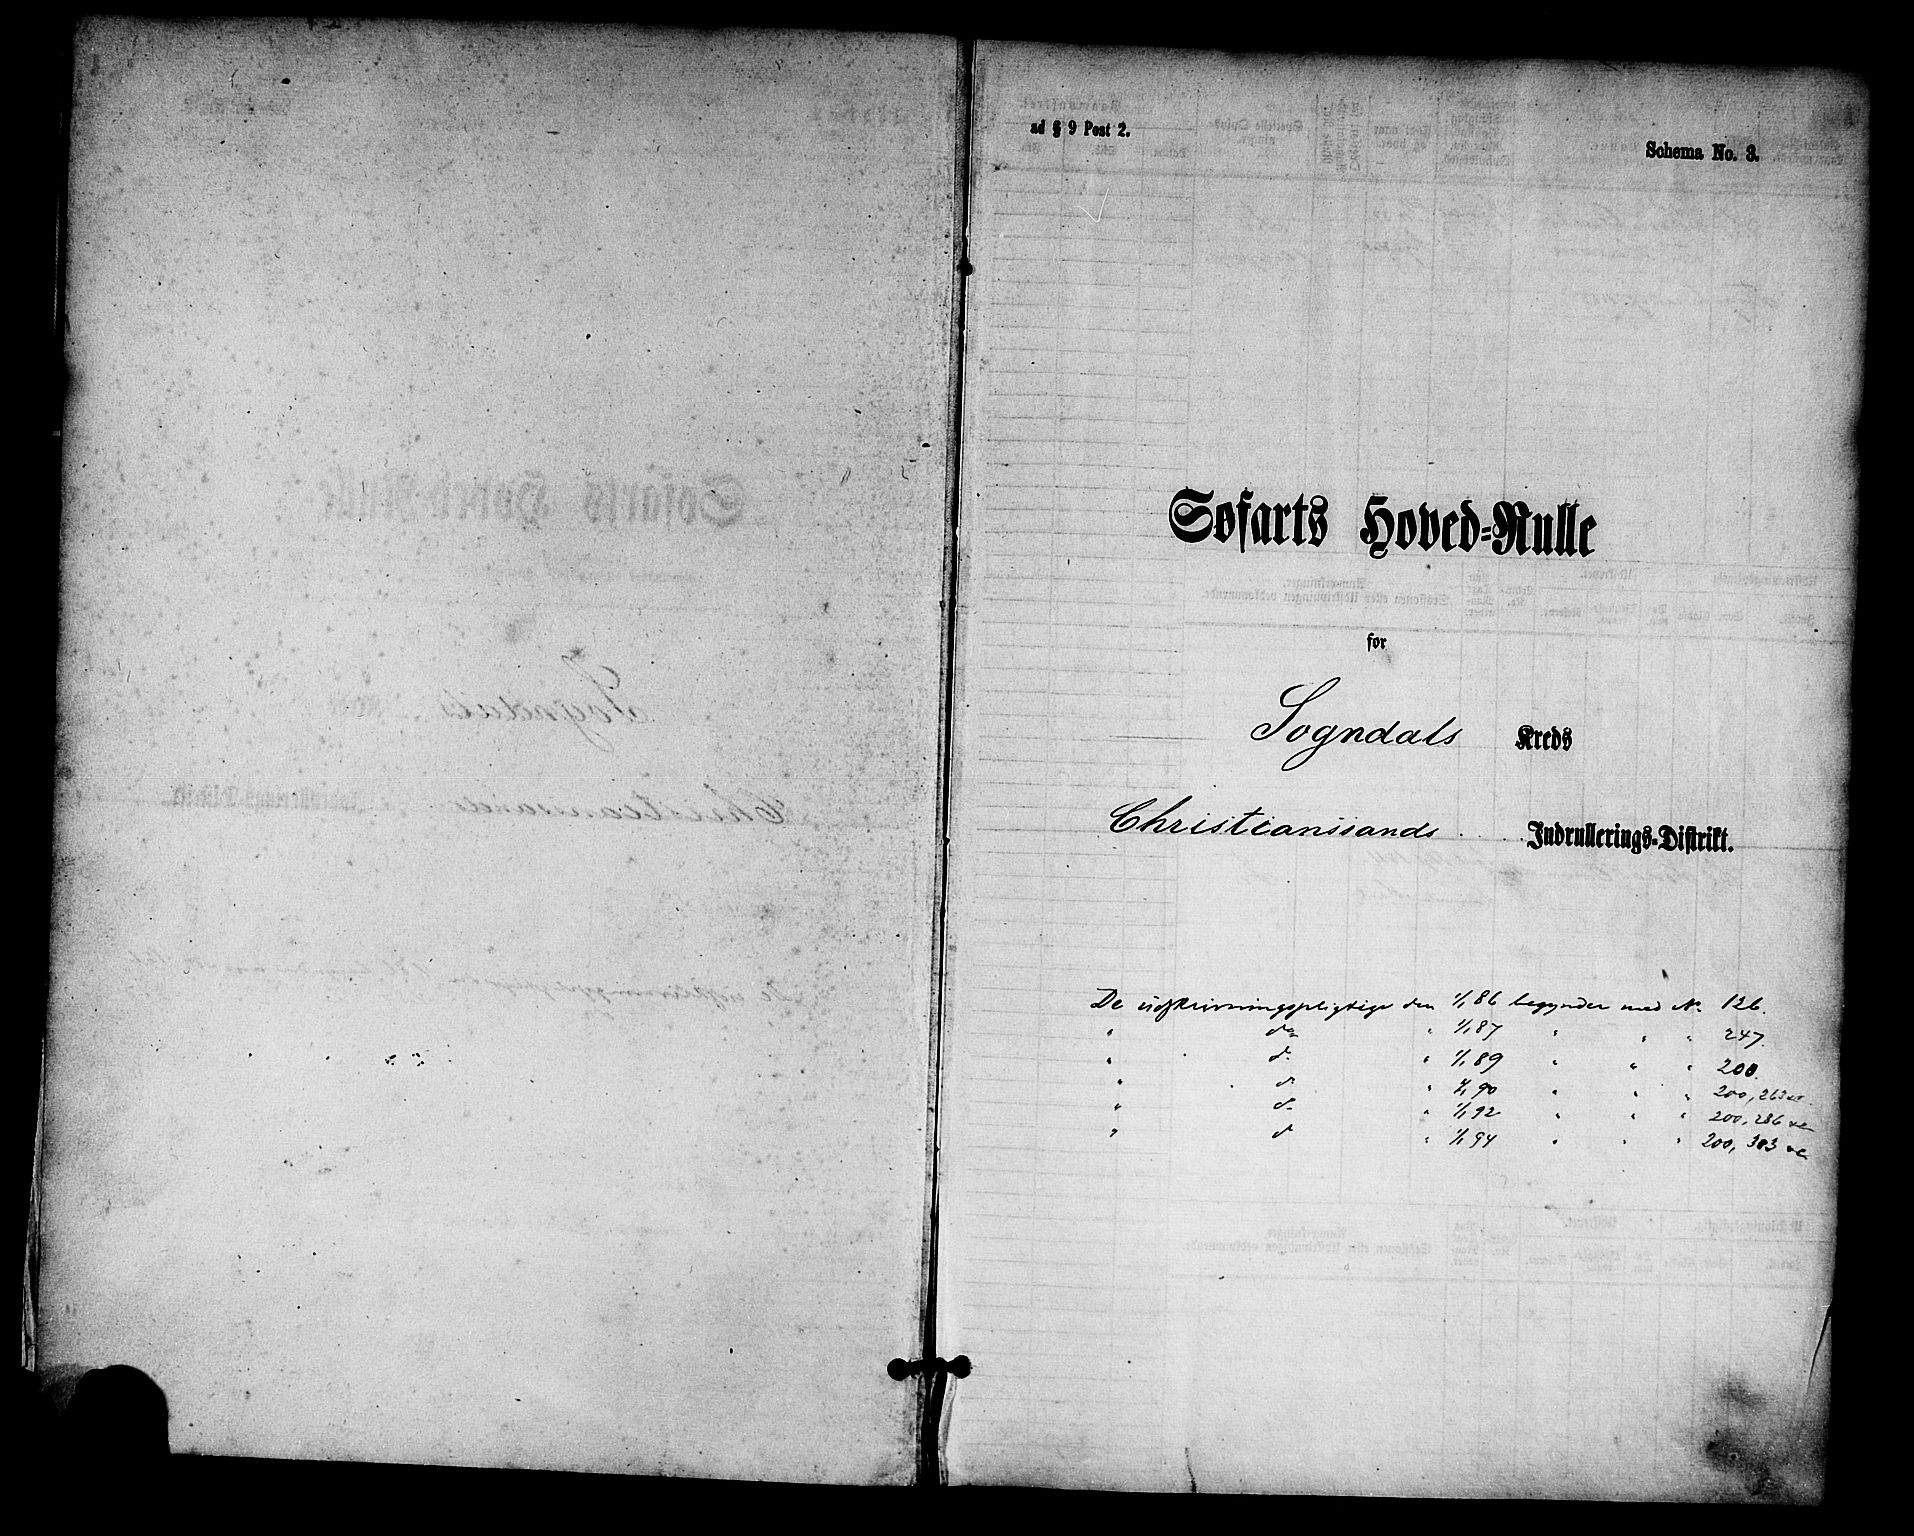 ad § 9 Post 2.
Schema No. 3.
Søfarts Hoved-Rulle
for
Sogndals Kreds
Christianssands Indrullerings-Distrikt.
De udskrivningspligtige den 1/1 86 begynder med N. 126.
" do " 1/1 87 " " " 247.
" d. " 1/1 89 " " " 200.
" d. " 1/1 90 " " " 200, 263 &c.
" d. " 1/1 92 " " " 200, 286 &c
" d " 1/1 94 " " " 200, 303 &c